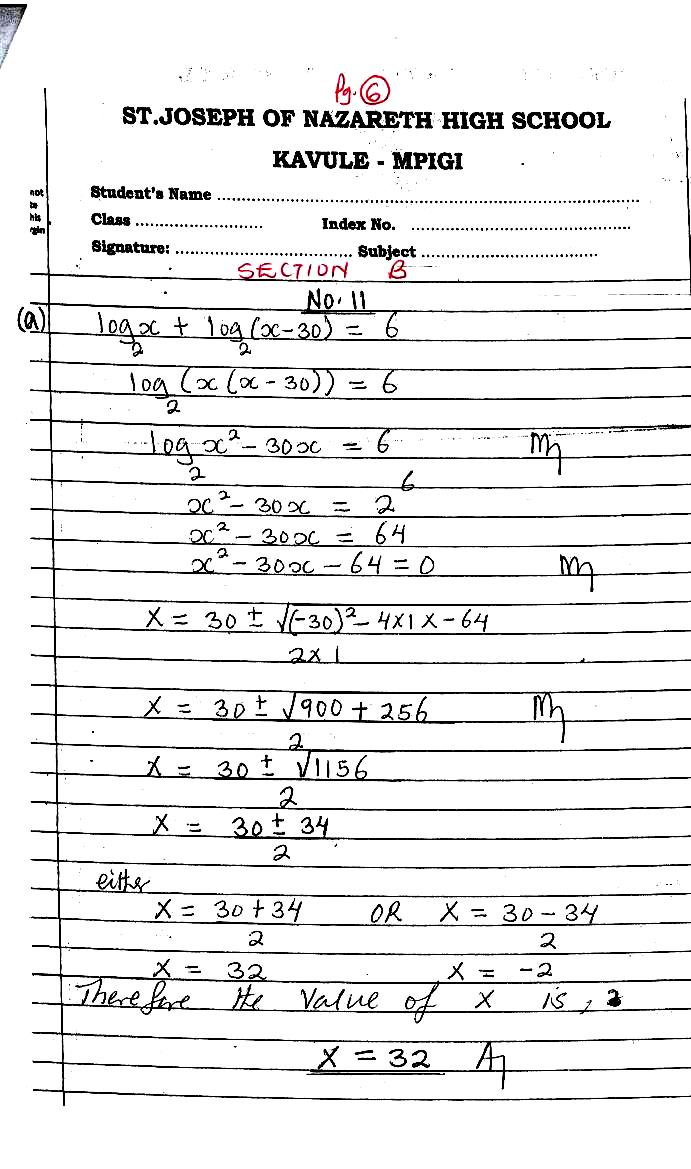 Pg. 6
ST.JOSEPH OF NAZARETH HIGH SCHOOL
KAVULE - MPIGI
not
his
Student's Name ..........
Class .......... Index No. ..........
Signature: .......... Subject ..........
SECTION B
No. 11
(a) log₂x + log₂(x-30) = 6
log₂(x(x-30)) = 6
log₂x² - 30x = 6 M1
x² - 30x = 2⁶
x² - 30x = 64
x² - 30x - 64 = 0 M1
X = 30 ± √(-30)² - 4x1x-64
2x1
X = 30 ± √900 + 256 M1
2
X = 30 ± √1156
2
X = 30 ± 34
2
either
X = 30+34 OR X = 30-34
2 2
X = 32 X = -2
Therefore the value of x is,
X = 32 A1